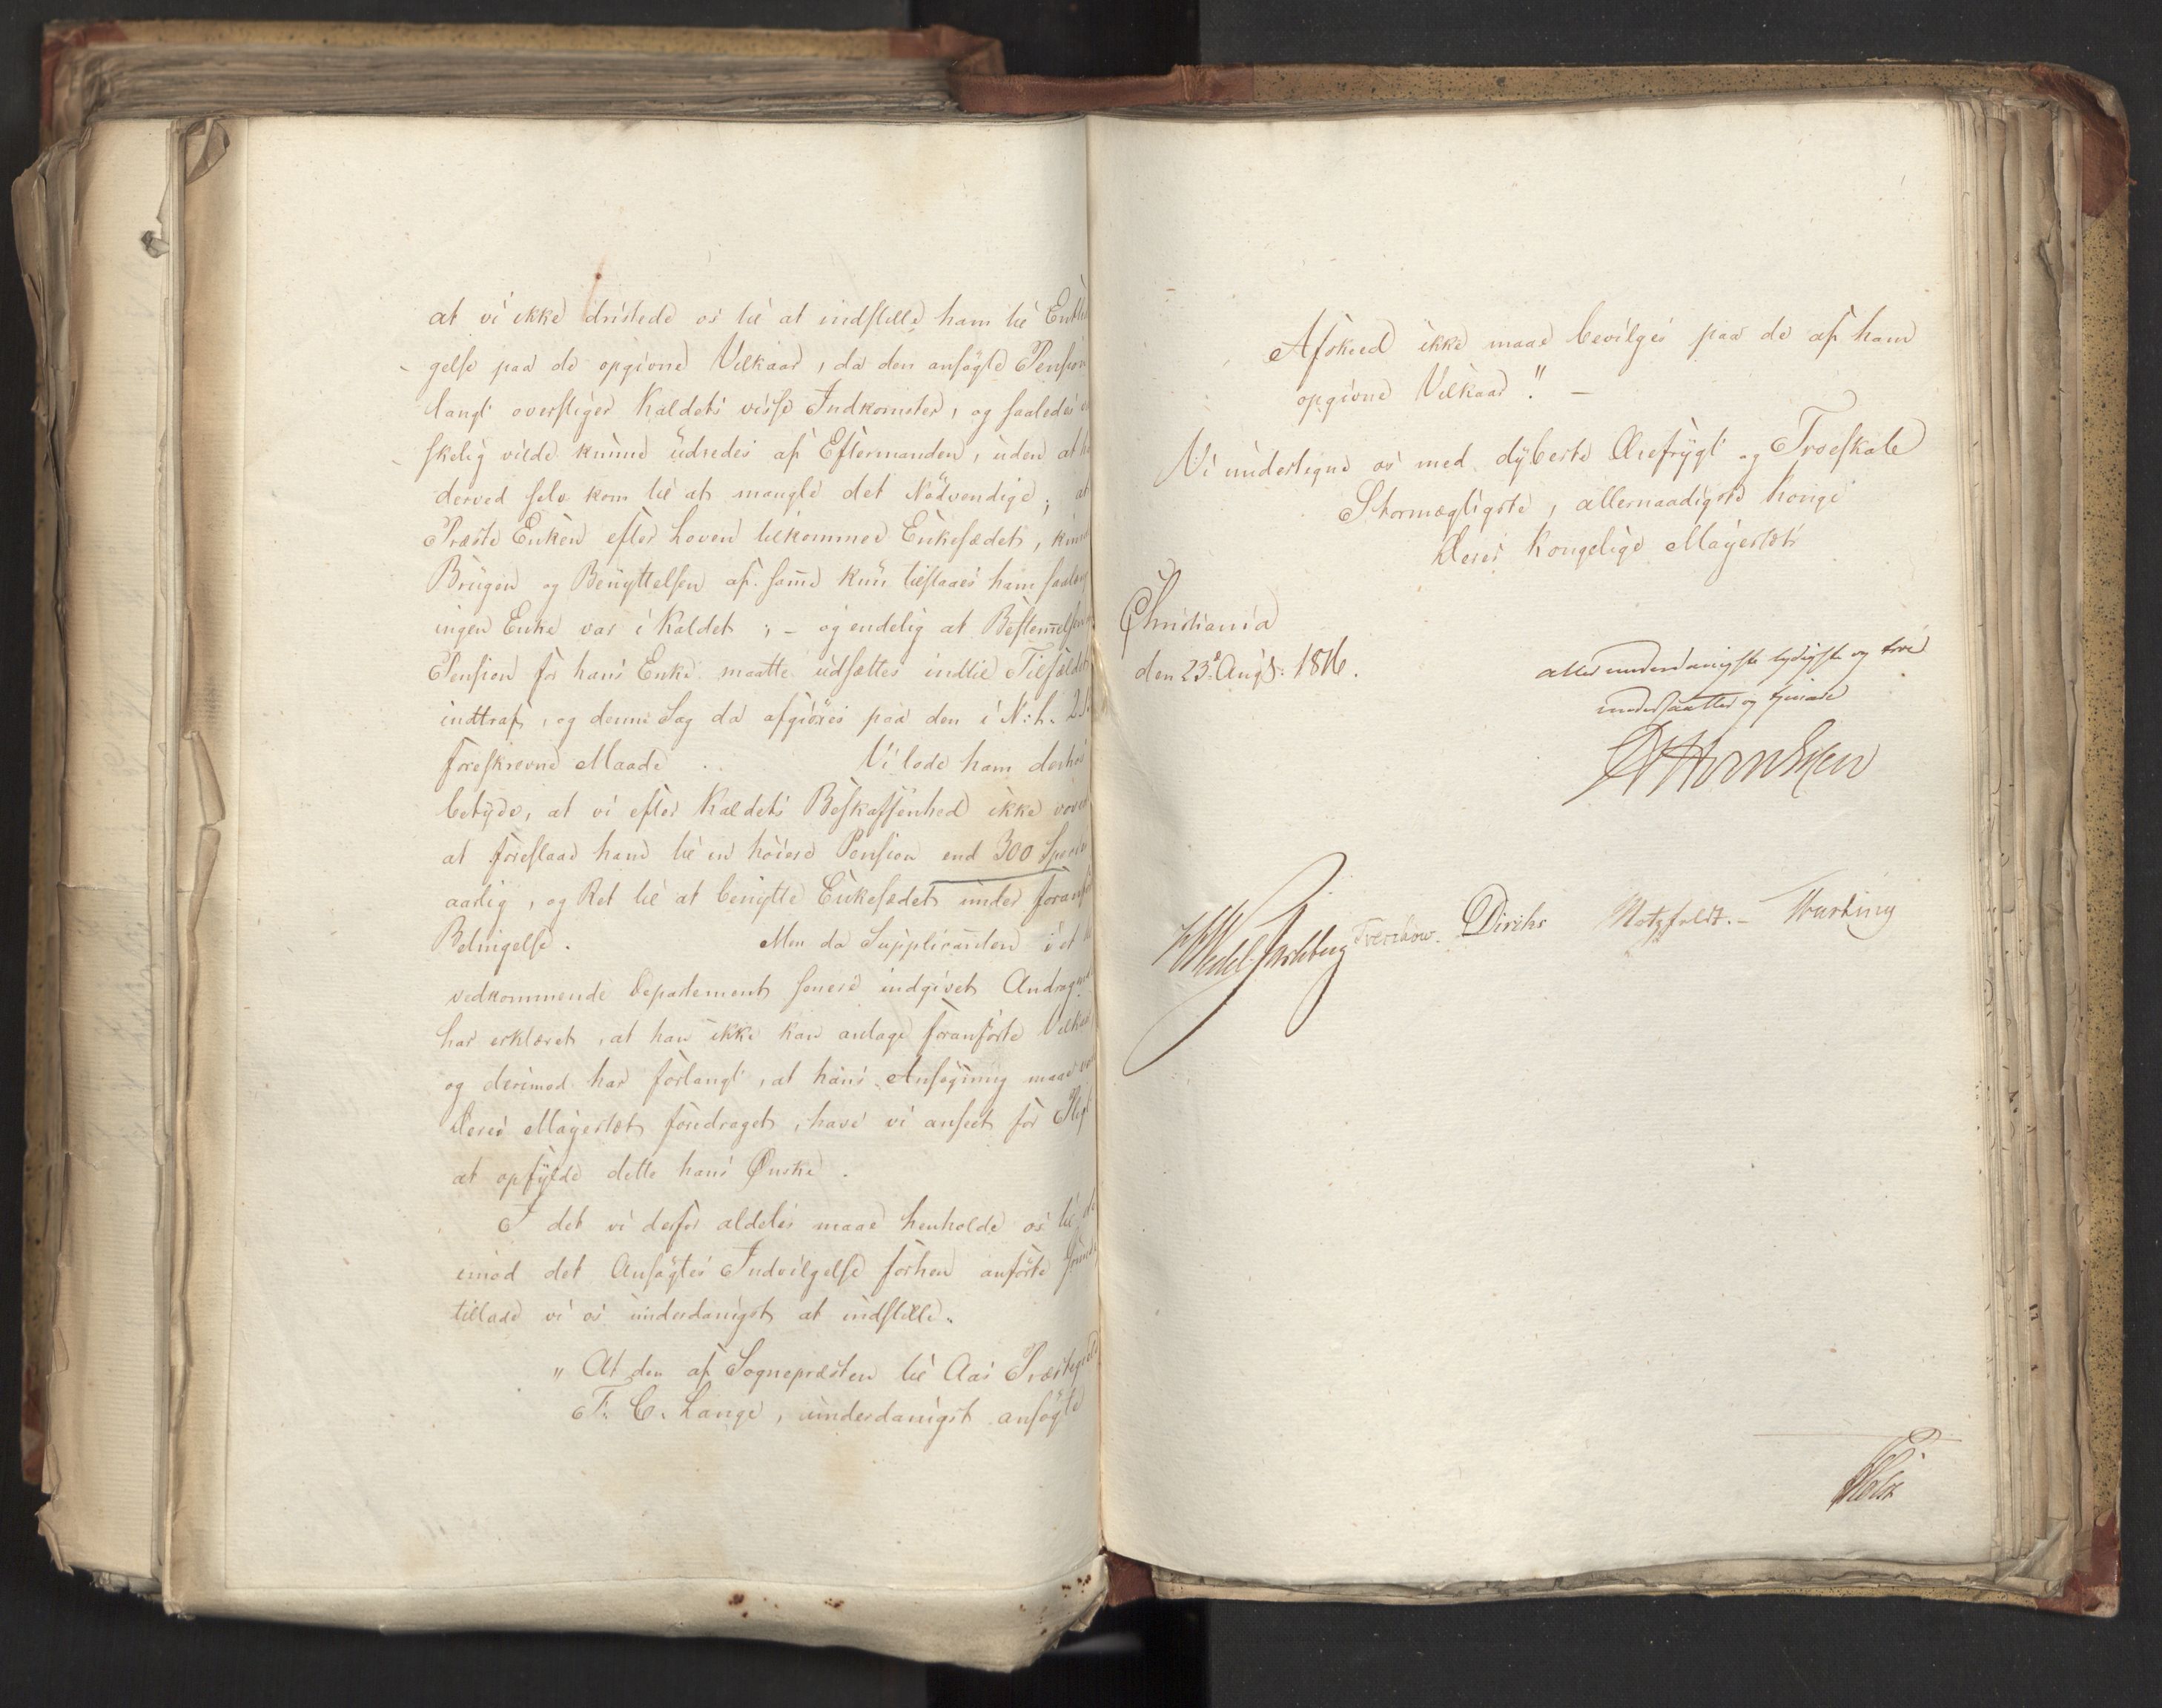 at vi ikke dristede os til at indstille ham til Entle
gelse paa de opgivne Vilkaar, da den ansøgte Pension
langt overstiger Kaldets visse Indkomster, og saaledes
skelig vilde kunne udredes af Eftermanden, uden at
derved selv kom til at mangle det Nødvendige; at
Præste Enken efter Loven tilkommer Enkesædet, kun
Brugen og Benyttelsen af samme kun tilstaaes ham saalænge
ingen Enke var i Kaldet; - og endelig at Bestemmelsen
Pension for hans Enke maatte udsættes indtil Tilfældet
indtraf, og denne Sag da afgiøres paa den i N: L. 2
foreskrevne Maade. Vi lode ham derhos
betyde, at vi efter Kaldets Beskaffenhed ikke vovede
at foreslaae ham til en høiere Pension end 300 Specd
aarlig, og Ret til at benytte Enkesædet under foranf
Betingelse. Men da Supplicanten i et
vedkommende Departement senere indgivet Andragende
har erklæret, at han ikke kan antage foranførte Vilkaar
og derimod har forlangt, at hans Ansøgning maae
Deres Majestæt foredraget, have vi anseet for Pligt
at opfylde dette hans Ønske.
I det vi derfor aldeles maae henholde os til de
imod det Ansøgtes Indvilgelse forhen anførte Grunde
tillade vi os underdanigst at indstille:
" At den af Sognepræsten til Aas Præstegield
F. C. Lange, underdanigst ansøgte
Afskeed ikke maae bevilges paa de af ham
opgivne Vilkaar." -
Vi undertegne os med dybeste Ærefrygt og Troeskab
Stormægtigste, allernaadigste Konge
Deres Kongelige Majestæts
Christiania
den 23de Augs: 1816.
allerunderdanigste lydigste og troe
undersaatter og tjenere
Wedel Jarlsberg Treschow. Diriks Motzfeldt. -
Holst